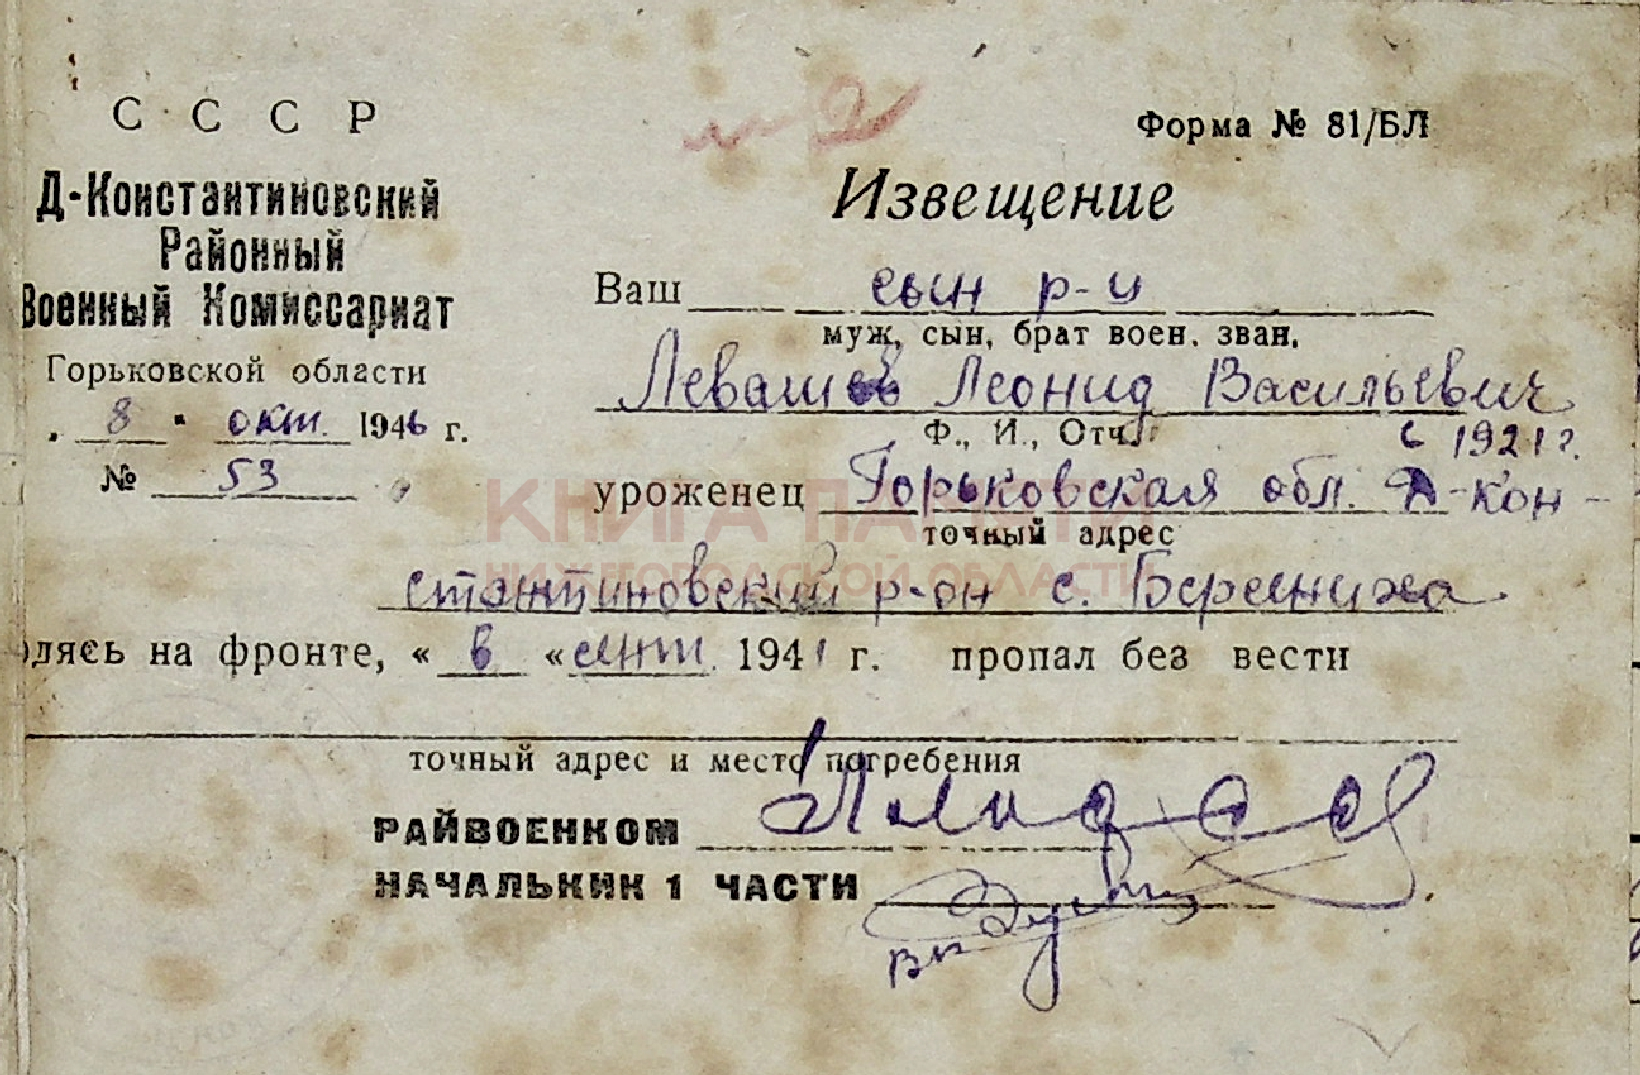 СССР
Форма № 81/БЛ
Д-Константиновский
Районный
Военный Комиссариат
Горьковской области
8 " окт. 1946 г.
№ 53
Извещение
Ваш сын р-ц
муж, сын, брат воен. зван.
Левашев Леонид Васильевич
Ф., И., Отч.
с 1921 г.
уроженец Горьковская обл. Д-кон-
точный адрес
стантиновский р-он с.
дясь на фронте, « в « сент. 1941 г. пропал без вести
точный адрес и место погребения
РАЙВОЕНКОМ
НАЧАЛЬКИК 1 ЧАСТИ
КНИГА ПАМЯТИ
НИЖЕГОРОДСКОЙ ОБЛАСТИ